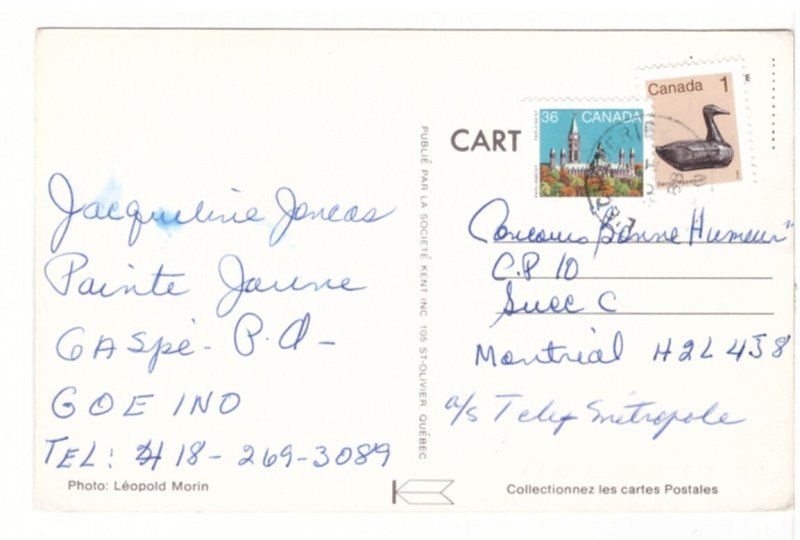 Jacqueline Joncas
Pointe Jaune
GAspé - P.Q -
GOE INO
TEL: 418-269-3089
Photo: Léopold Morin
PUBLIÉ PAR LA SOCIETÉ KENT INC. 105 ST-OLIVIER QUÉBEC
CART
36 CANADA
Canada 1
E
Concours "Bonne Humeur"
C.P 10
Succ C
Montréal H2L 4J8
a/s Télé Métropole
Collectionnez les cartes Postales